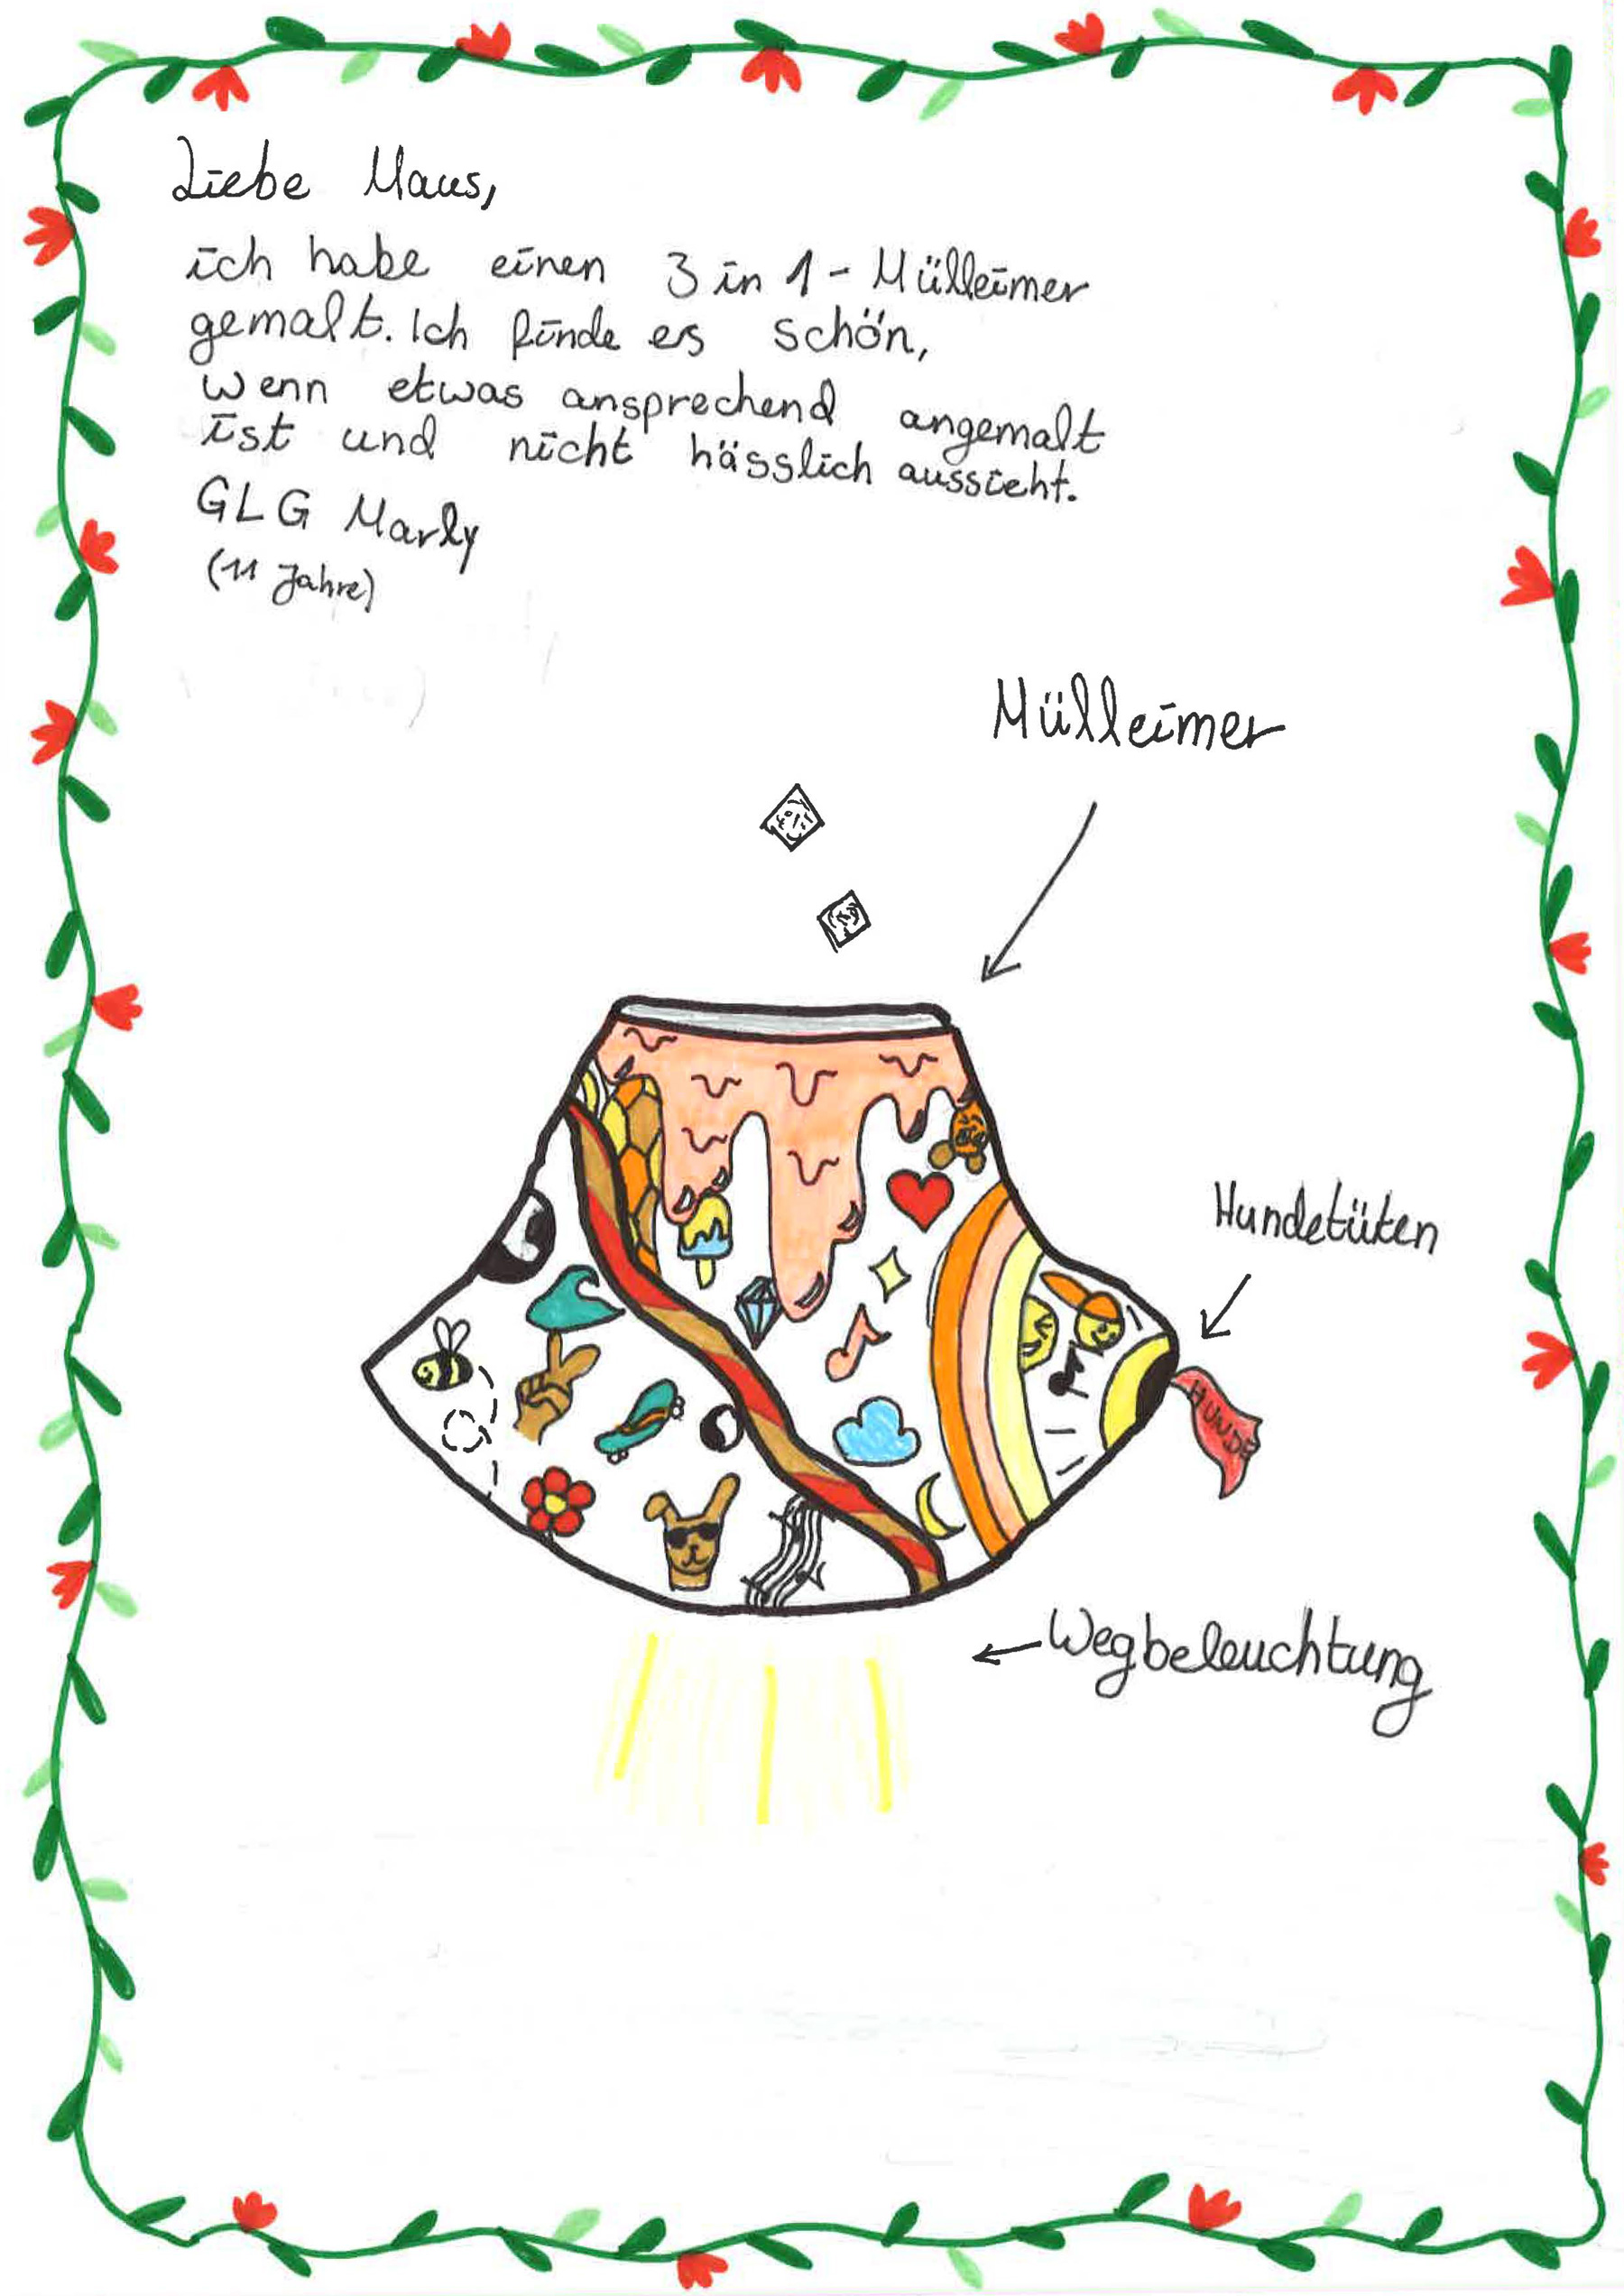 Liebe Maus,
ich habe einen 3 in 1 - Mülleimer
gemalt. Ich finde es schön,
wenn etwas ansprechend angemalt
ist und nicht hässlich aussieht.
GLG Marly
(11 Jahre)
Mülleimer
Hundetüten
HUNDE
Wegbeleuchtung